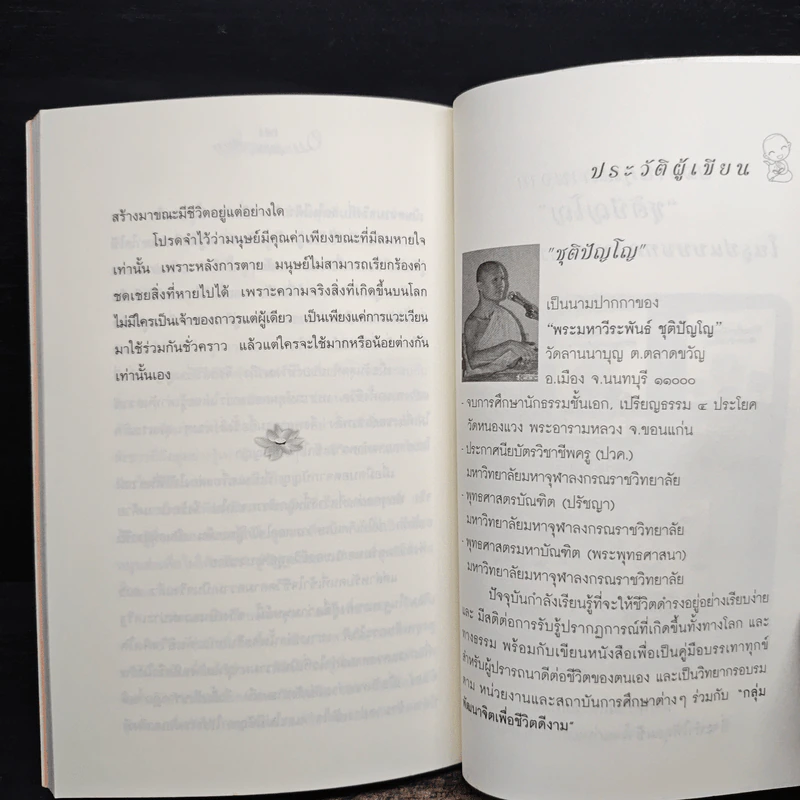 สร้างมาขณะมีชีวิตอยู่แต่อย่างใด
โปรดจำไว้ว่ามนุษย์มีคุณค่าเพียงขณะที่มีลมหายใจ
เท่านั้น เพราะหลังการตาย มนุษย์ไม่สามารถเรียกร้องค่า
ชดเชยสิ่งที่หายไปได้ เพราะความจริงสิ่งที่เกิดขึ้นบนโลก
ไม่มีใครเป็นเจ้าของถาวรแต่ผู้เดียว เป็นเพียงแค่การแวะเวียน
มาใช้ร่วมกันชั่วคราว แล้วแต่ใครจะใช้มากหรือน้อยต่างกัน
เท่านั้นเอง
ประวัติผู้เขียน
"ชุติปัญโญ"
เป็นนามปากกาของ
"พระมหาวีระพันธ์ ชุติปัญโญ"
วัดลานนาบุญ ต.ตลาดขวัญ
อ.เมือง จ.นนทบุรี ๑๑๐๐๐
- จบการศึกษานักธรรมชั้นเอก, เปรียญธรรม ๔ ประโยค
วัดหนองแวง พระอารามหลวง จ.ขอนแก่น
- ประกาศนียบัตรวิชาชีพครู (ปวค.)
มหาวิทยาลัยมหาจุฬาลงกรณราชวิทยาลัย
- พุทธศาสตรบัณฑิต (ปรัชญา)
มหาวิทยาลัยมหาจุฬาลงกรณราชวิทยาลัย
- พุทธศาสตรมหาบัณฑิต (พระพุทธศาสนา)
มหาวิทยาลัยมหาจุฬาลงกรณราชวิทยาลัย
ปัจจุบันกำลังเรียนรู้ที่จะให้ชีวิตดำรงอยู่อย่างเรียบง่าย
และ มีสติต่อการรับรู้ปรากฏการณ์ที่เกิดขึ้นทั้งทางโลก และ
ทางธรรม พร้อมกับเขียนหนังสือเพื่อเป็นคู่มือบรรเทาทุกข์
สำหรับผู้ปรารถนาดีต่อชีวิตของตนเอง และเป็นวิทยากรอบรม
ตาม หน่วยงานและสถาบันการศึกษาต่างๆ ร่วมกับ "กลุ่ม
พัฒนาจิตเพื่อชีวิตดีงาม"